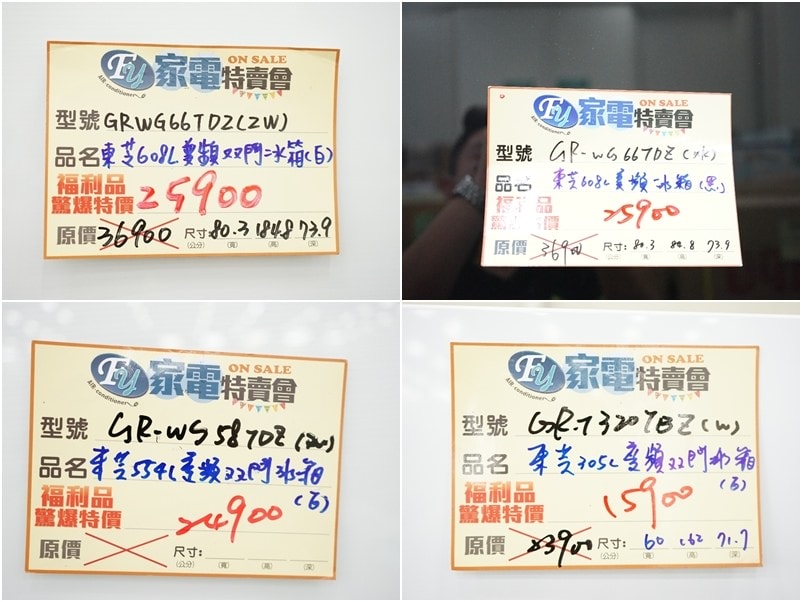 FU 家電特賣會 ON SALE
AIR conditioner
型號 GRWG66TDZ(ZW)
品名 東芝608L變頻双門冰箱(白)
福利品
驚爆特價 25900
原價 36900 尺寸: 80.3 184.8 73.9
(公分) (寬) (高) (深)
FU 家電特賣會 ON SALE
AIR conditioner
型號 GR-WG66TDZ
品名 東芝608L變頻冰箱(黑)
福利品
驚爆特價 25900
原價 36900 尺寸: 80.3 84.8 73.9
(公分) (寬) (高) (深)
FU 家電特賣會 ON SALE
AIR conditioner
型號 GR-WG58TDZ(ZW)
品名 東芝554L變頻双門冰箱
(白)
福利品
驚爆特價 24900
原價 尺寸:
(公分) (寬) (高) (深)
FU 家電特賣會 ON SALE
AIR conditioner
型號 GR-T320TBZ(W)
品名 東芝305L變頻双門冰箱
(白)
福利品
驚爆特價 15900
原價 23900 尺寸: 60 162 71.7
(公分) (寬) (高) (深)